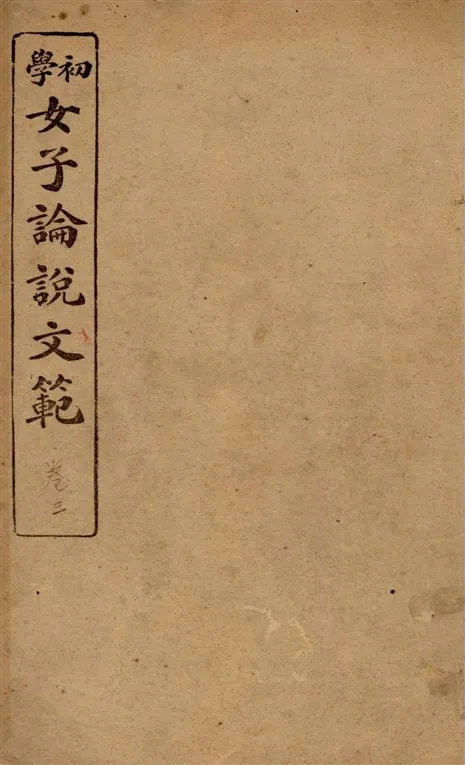 初學
女子論說文範
卷三